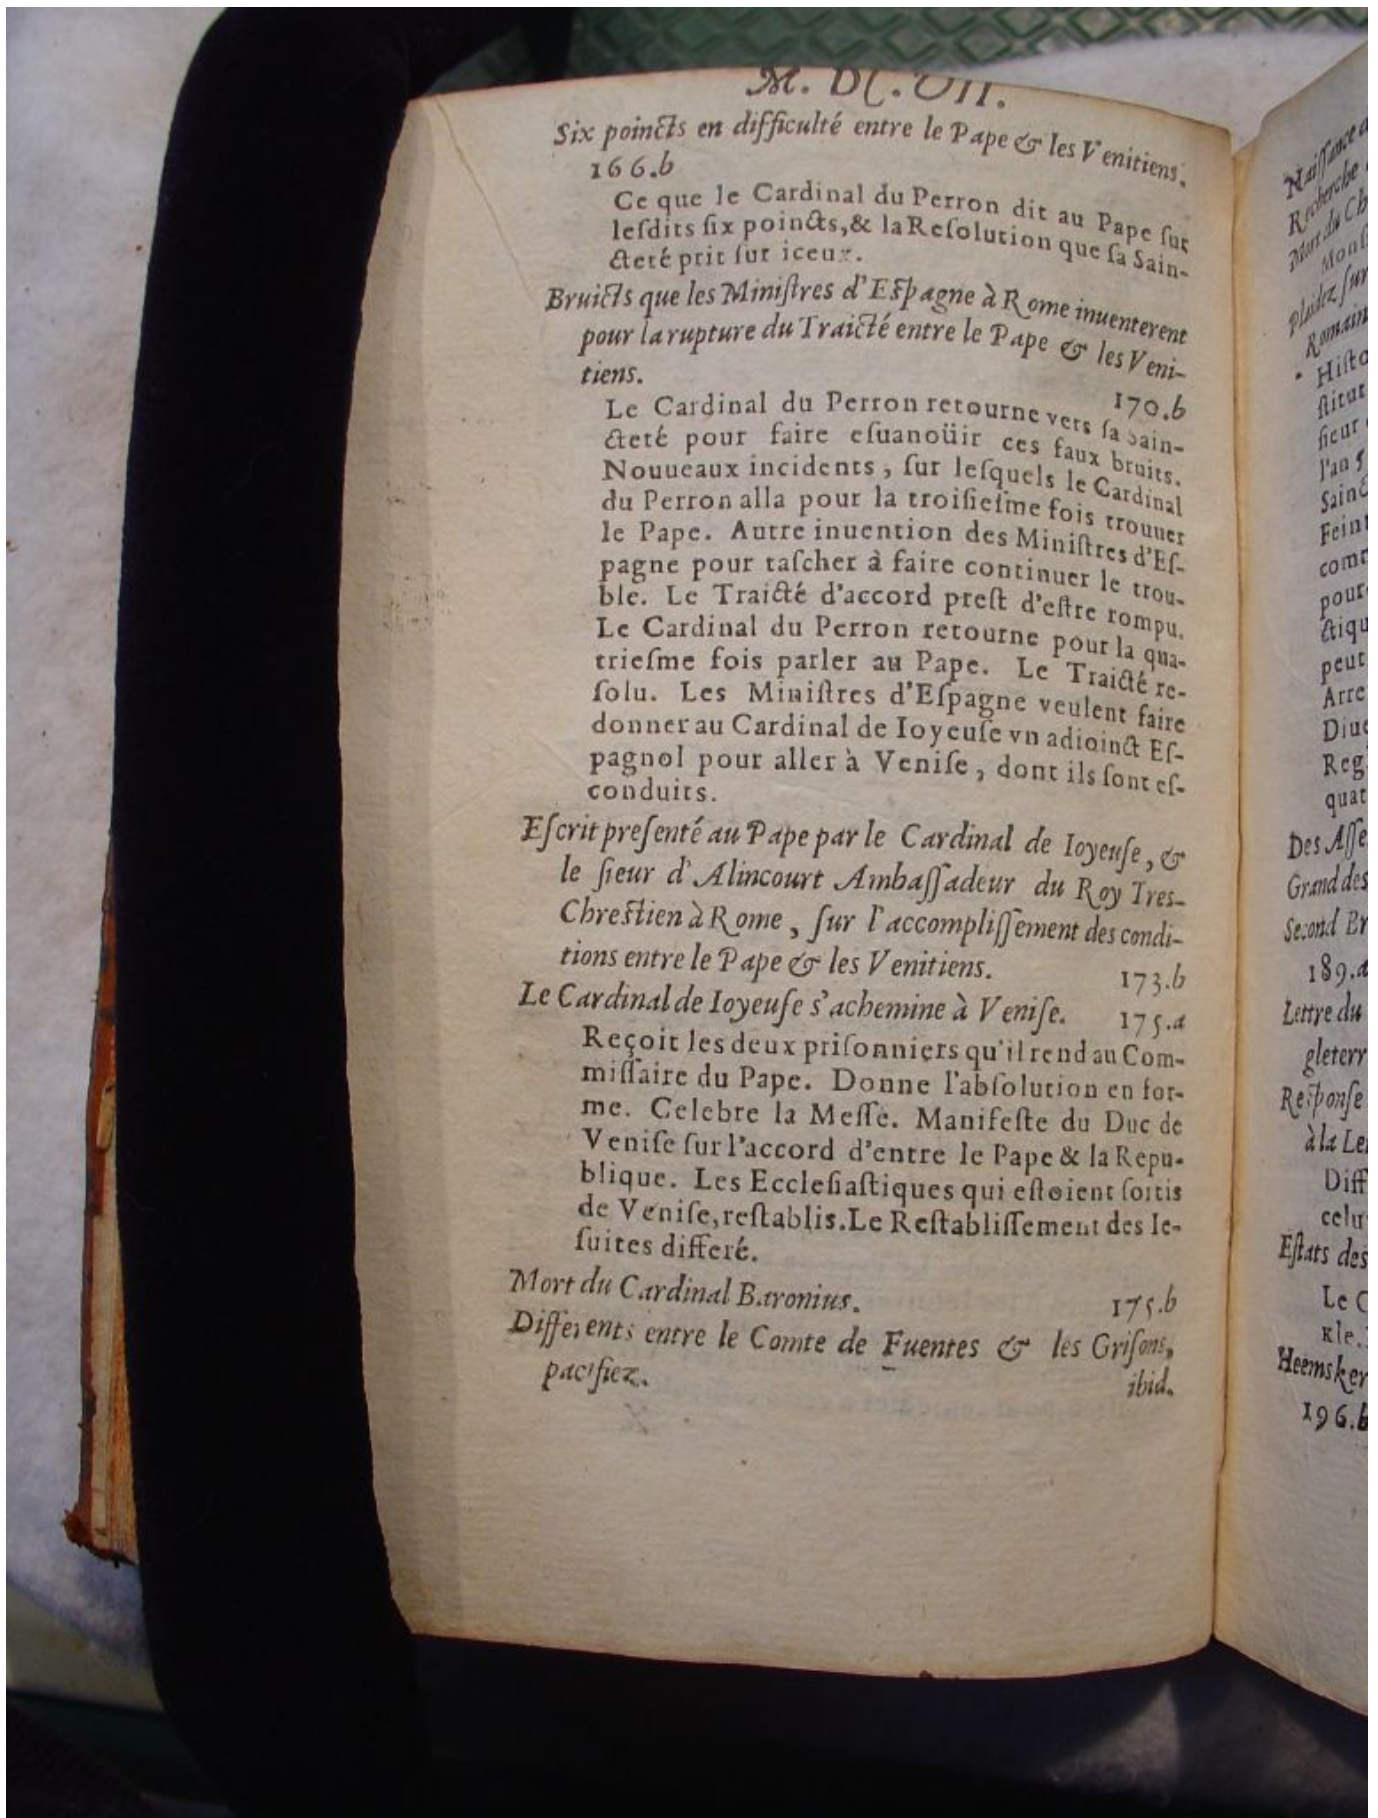 M. DC. VII.
Six poincts en difficulté entre le Pape & les Venitiens.
166.b
Ce que le Cardinal du Perron dit au Pape sur
lesdits ſix poincts, & la Reſolution que ſa Sain-
cteté prit ſur iceux.
Bruicts que les Miniſtres d'Eſpagne à Rome inuenterent
pour la rupture du Traicté entre le Pape & les Veni-
tiens. 170.b
Le Cardinal du Perron retourne vers ſa Sain-
cteté pour faire eſuanoüir ces faux bruits.
Nouueaux incidents, ſur leſquels le Cardinal
du Perron alla pour la troiſieſme fois trouuer
le Pape. Autre inuention des Miniſtres d'Eſ-
pagne pour taſcher à faire continuer le trou-
ble. Le Traicté d'accord preſt d'eſtre rompu.
Le Cardinal du Perron retourne pour la qua-
trieſme fois parler au Pape. Le Traicté re-
ſolu. Les Miniſtres d'Eſpagne veulent faire
donner au Cardinal de Ioyeuſe vn adioinct Eſ-
pagnol pour aller à Veniſe, dont ils ſont eſ-
conduits.
Eſcrit preſenté au Pape par le Cardinal de Ioyeuſe, &
le ſieur d'Alincourt Ambaſſadeur du Roy Tres-
Chreſtien à Rome, ſur l'accompliſſement des condi-
tions entre le Pape & les Venitiens. 173.b
Le Cardinal de Ioyeuſe s'achemine à Veniſe. 175.a
Reçoit les deux priſonniers qu'il rend au Com-
miſſaire du Pape. Donne l'abſolution en for-
me. Celebre la Meſſe. Manifeſte du Duc de
Veniſe ſur l'accord d'entre le Pape & la Repu-
blique. Les Eccleſiaſtiques qui eſtoient ſortis
de Veniſe, reſtablis. Le Reſtabliſſement des Ie-
ſuites differé.
Mort du Cardinal Baronius. 175.b
Differents entre le Comte de Fuentes & les Griſons,
pacifiez. ibid.
Naiſſance
Recherche
Mort du Ch
Monſ
Plaidez ſur
Romain
Hiſto
ſtitut
ſieur
l'an 5
Sainc
Feint
comt
pour
ctiqu
peut
Arre
Diue
Reg
quat
Des Aſſe
Grand des
Second Br
189.a
Lettre du
gleterr
Reſponſe
à la Let
Diff
celu
Eſtats des
Le C
Kle.
Heemsker
196.b